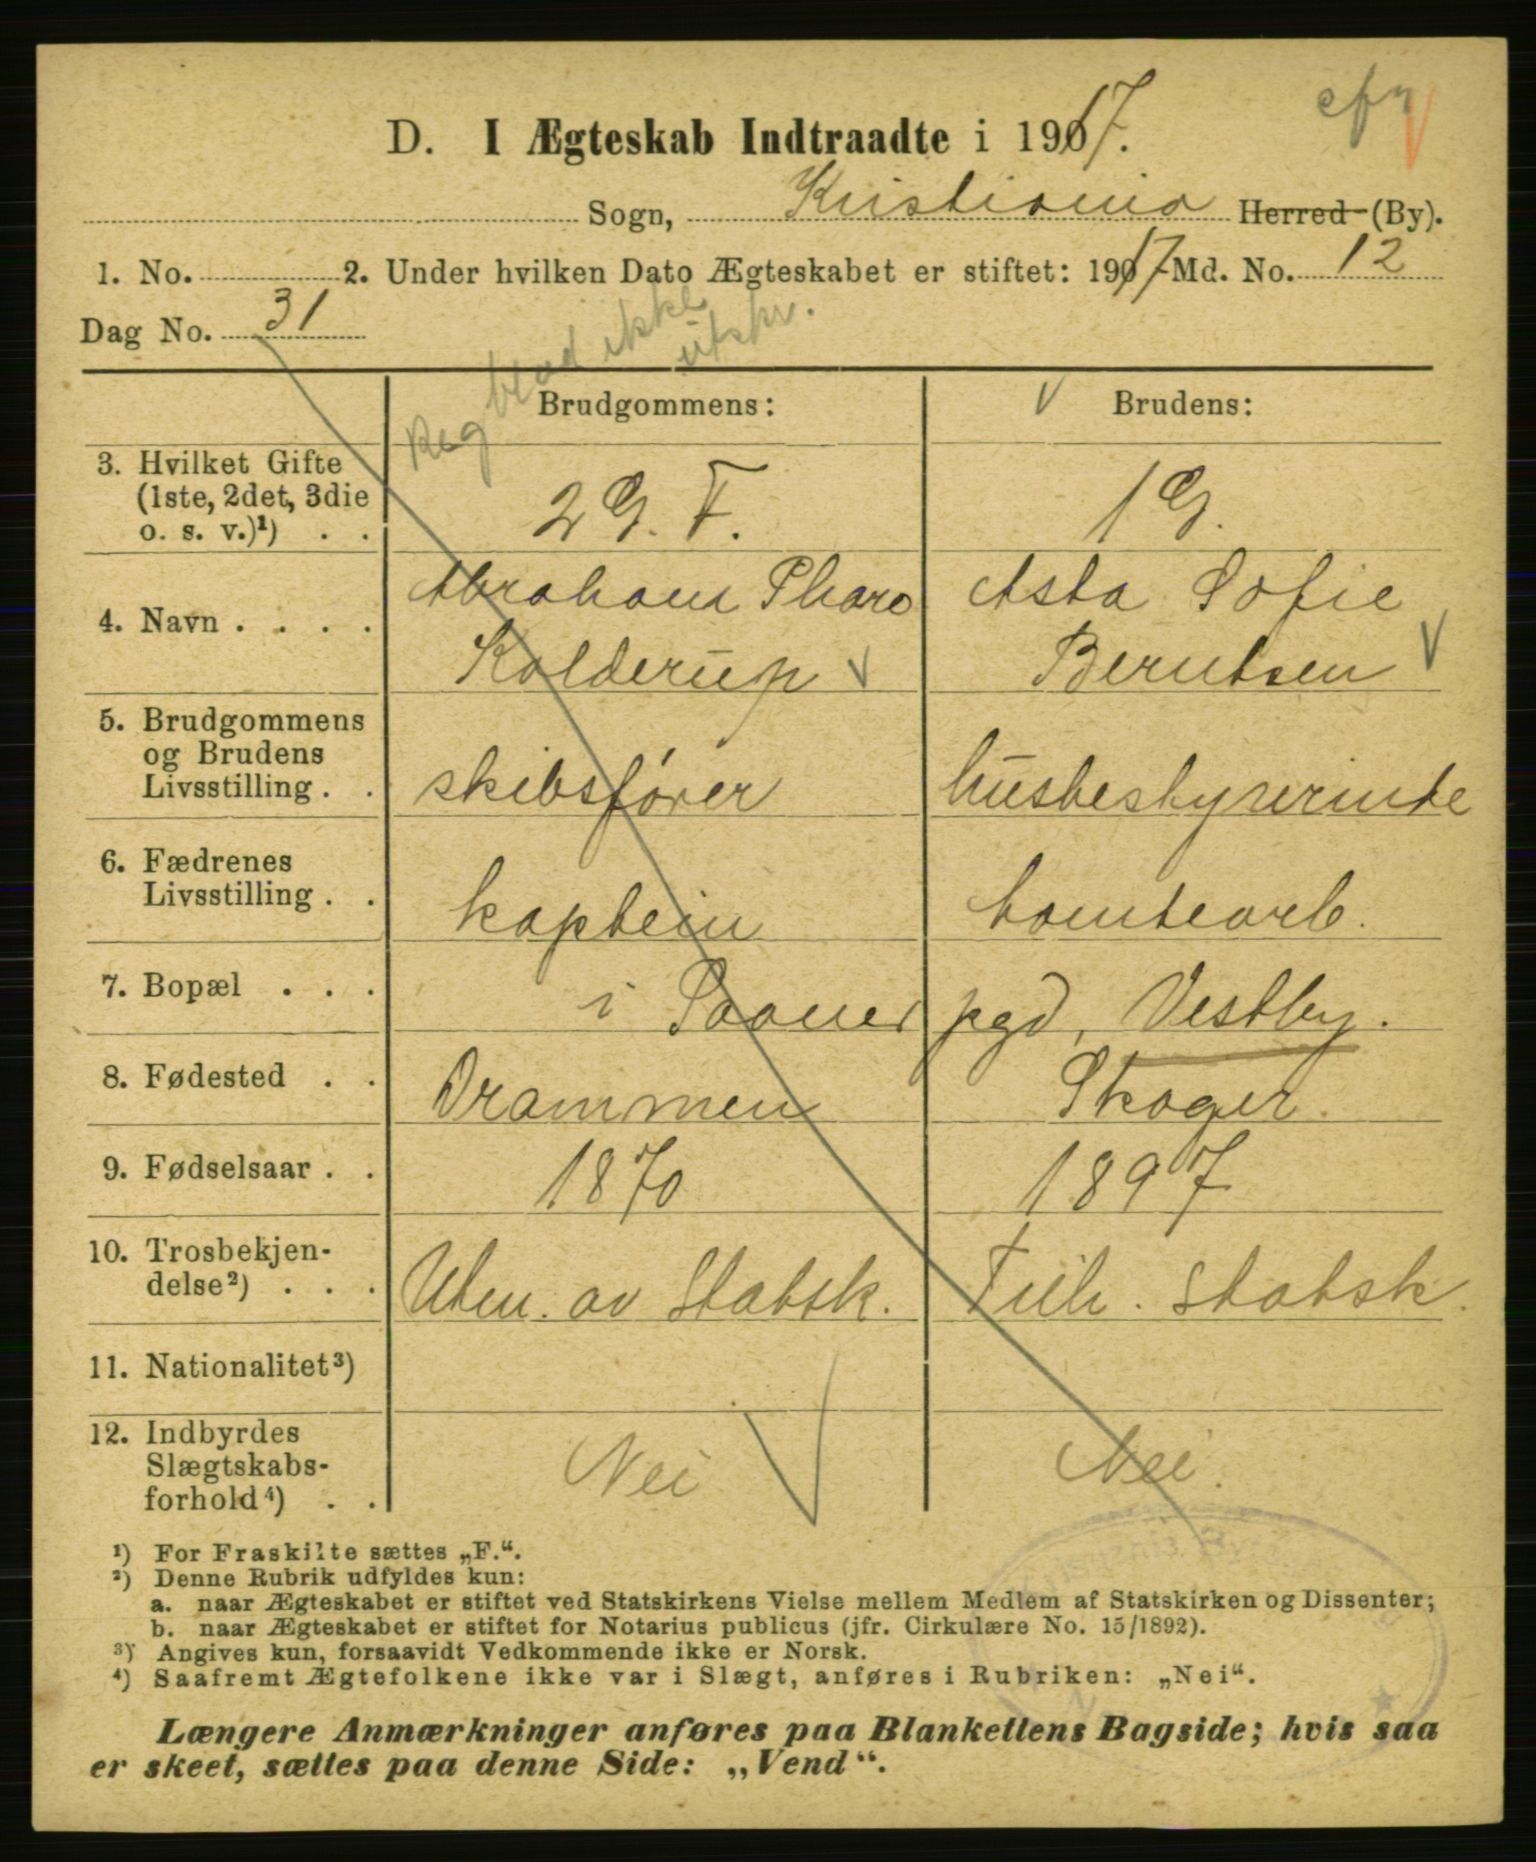 D. I Ægteskab Indtraadte i 1917.
Sogn, Kristiania Herred (By).
1. No. 2. Under hvilken Dato Ægteskabet er stiftet: 1917 Md. No. 12
Dag No. 31
Reg blad ikke
utskr.
Brudgommens: Brudens:
3. Hvilket Gifte
(1ste, 2det, 3die
o. s. v.)¹) . . 2 G. F. 1 G.
4. Navn . . . . Abraham Pharo Asta Sofie
Kolderup Berntsen
5. Brudgommens
og Brudens
Livsstilling . . skibsfører husbestyrerinde
6. Fædrenes
Livsstilling . . kaptein tomtearb.
7. Bopæl . . . i Sooner pgd, Vestby.
8. Fødested . . Drammen Skoger.
9. Fødselsaar . . 1870 1897
10. Trosbekjen-
delse²) . . . Uten. av Statsk. Tilh. Statsk.
11. Nationalitet³)
12. Indbyrdes
Slægtskabs-
forhold⁴) . . Nei Nei.
¹) For Fraskilte sættes „F.“.
²) Denne Rubrik udfyldes kun:
a. naar Ægteskabet er stiftet ved Statskirkens Vielse mellem Medlem af Statskirken og Dissenter;
b. naar Ægteskabet er stiftet for Notarius publicus (jfr. Cirkulære No. 15/1892).
³) Angives kun, forsaavidt Vedkommende ikke er Norsk.
⁴) Saafremt Ægtefolkene ikke var i Slægt, anføres i Rubriken: „Nei“.
Længere Anmærkninger anføres paa Blankettens Bagside; hvis saa
er skeet, sættes paa denne Side: „Vend“.